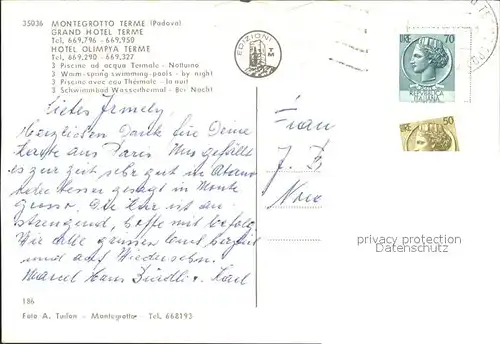 35036 MONTEGROTTO TERME (Padova)
GRAND HOTEL TERME
Tel. 669.796 - 669.950
HOTEL OLIMPYA TERME
Tel. 669.290 - 669.327
3 Piscine ad acqua Termale - Notturno
3 Warm-spring swimming-pools - by night
3 Piscine avec eau Thérmale - la nuit
3 Schwimmbad Wasserthermal - Bei Nacht
EDIZIONI TM
LIRE 70
REPUBBLICA
ITALIANA
LIRE 50
Liebes Irmely,
Herzlichen Dank für Deine
Karte aus Paris. Uns gefällt
es zur Zeit sehr gut in Abano
oder besser gesagt in Monte
grotto. Die Kur ist an
strengend, hoffe mit Erfolg.
Wir alle grüssen Euch herzlich
und auf Wiedersehn.
Marcel Hans
Frau
J. B
privacy protection
Datenschutz
186
Foto A. Turlon - Montegrotto - Tel. 668193